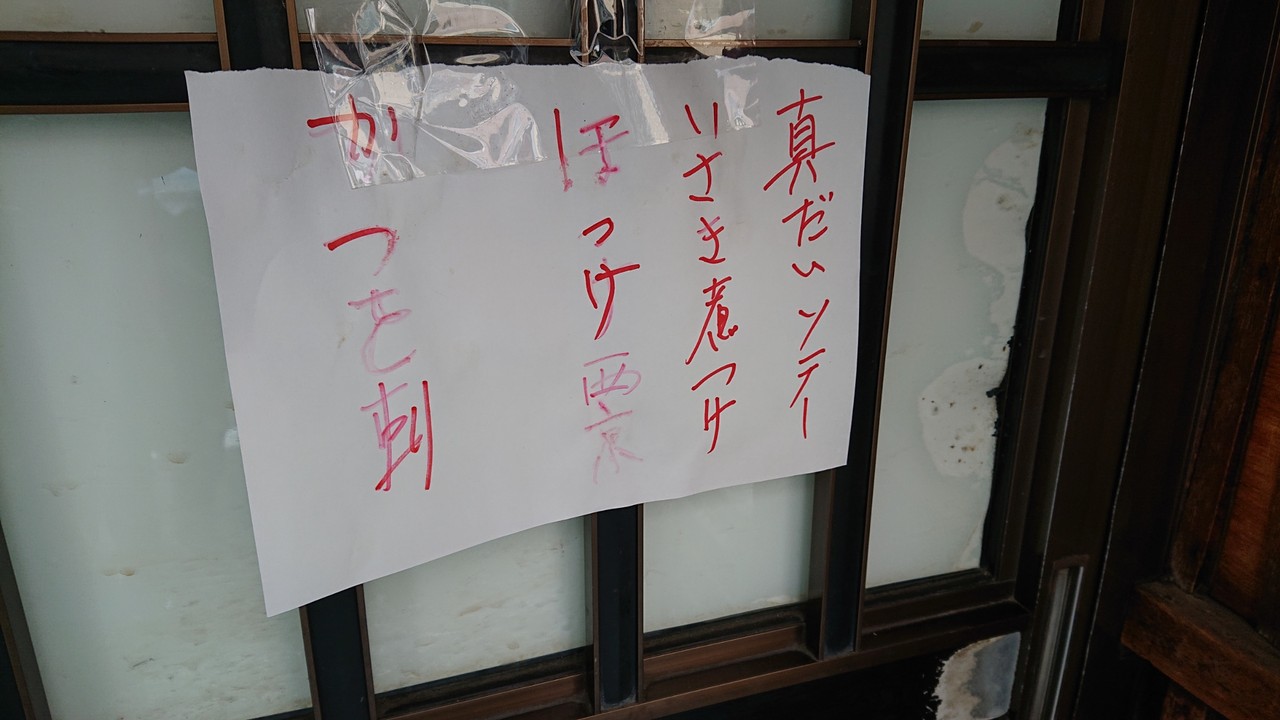 真だいソテー
いさき煮つけ
ほっけ西京
かつを刺